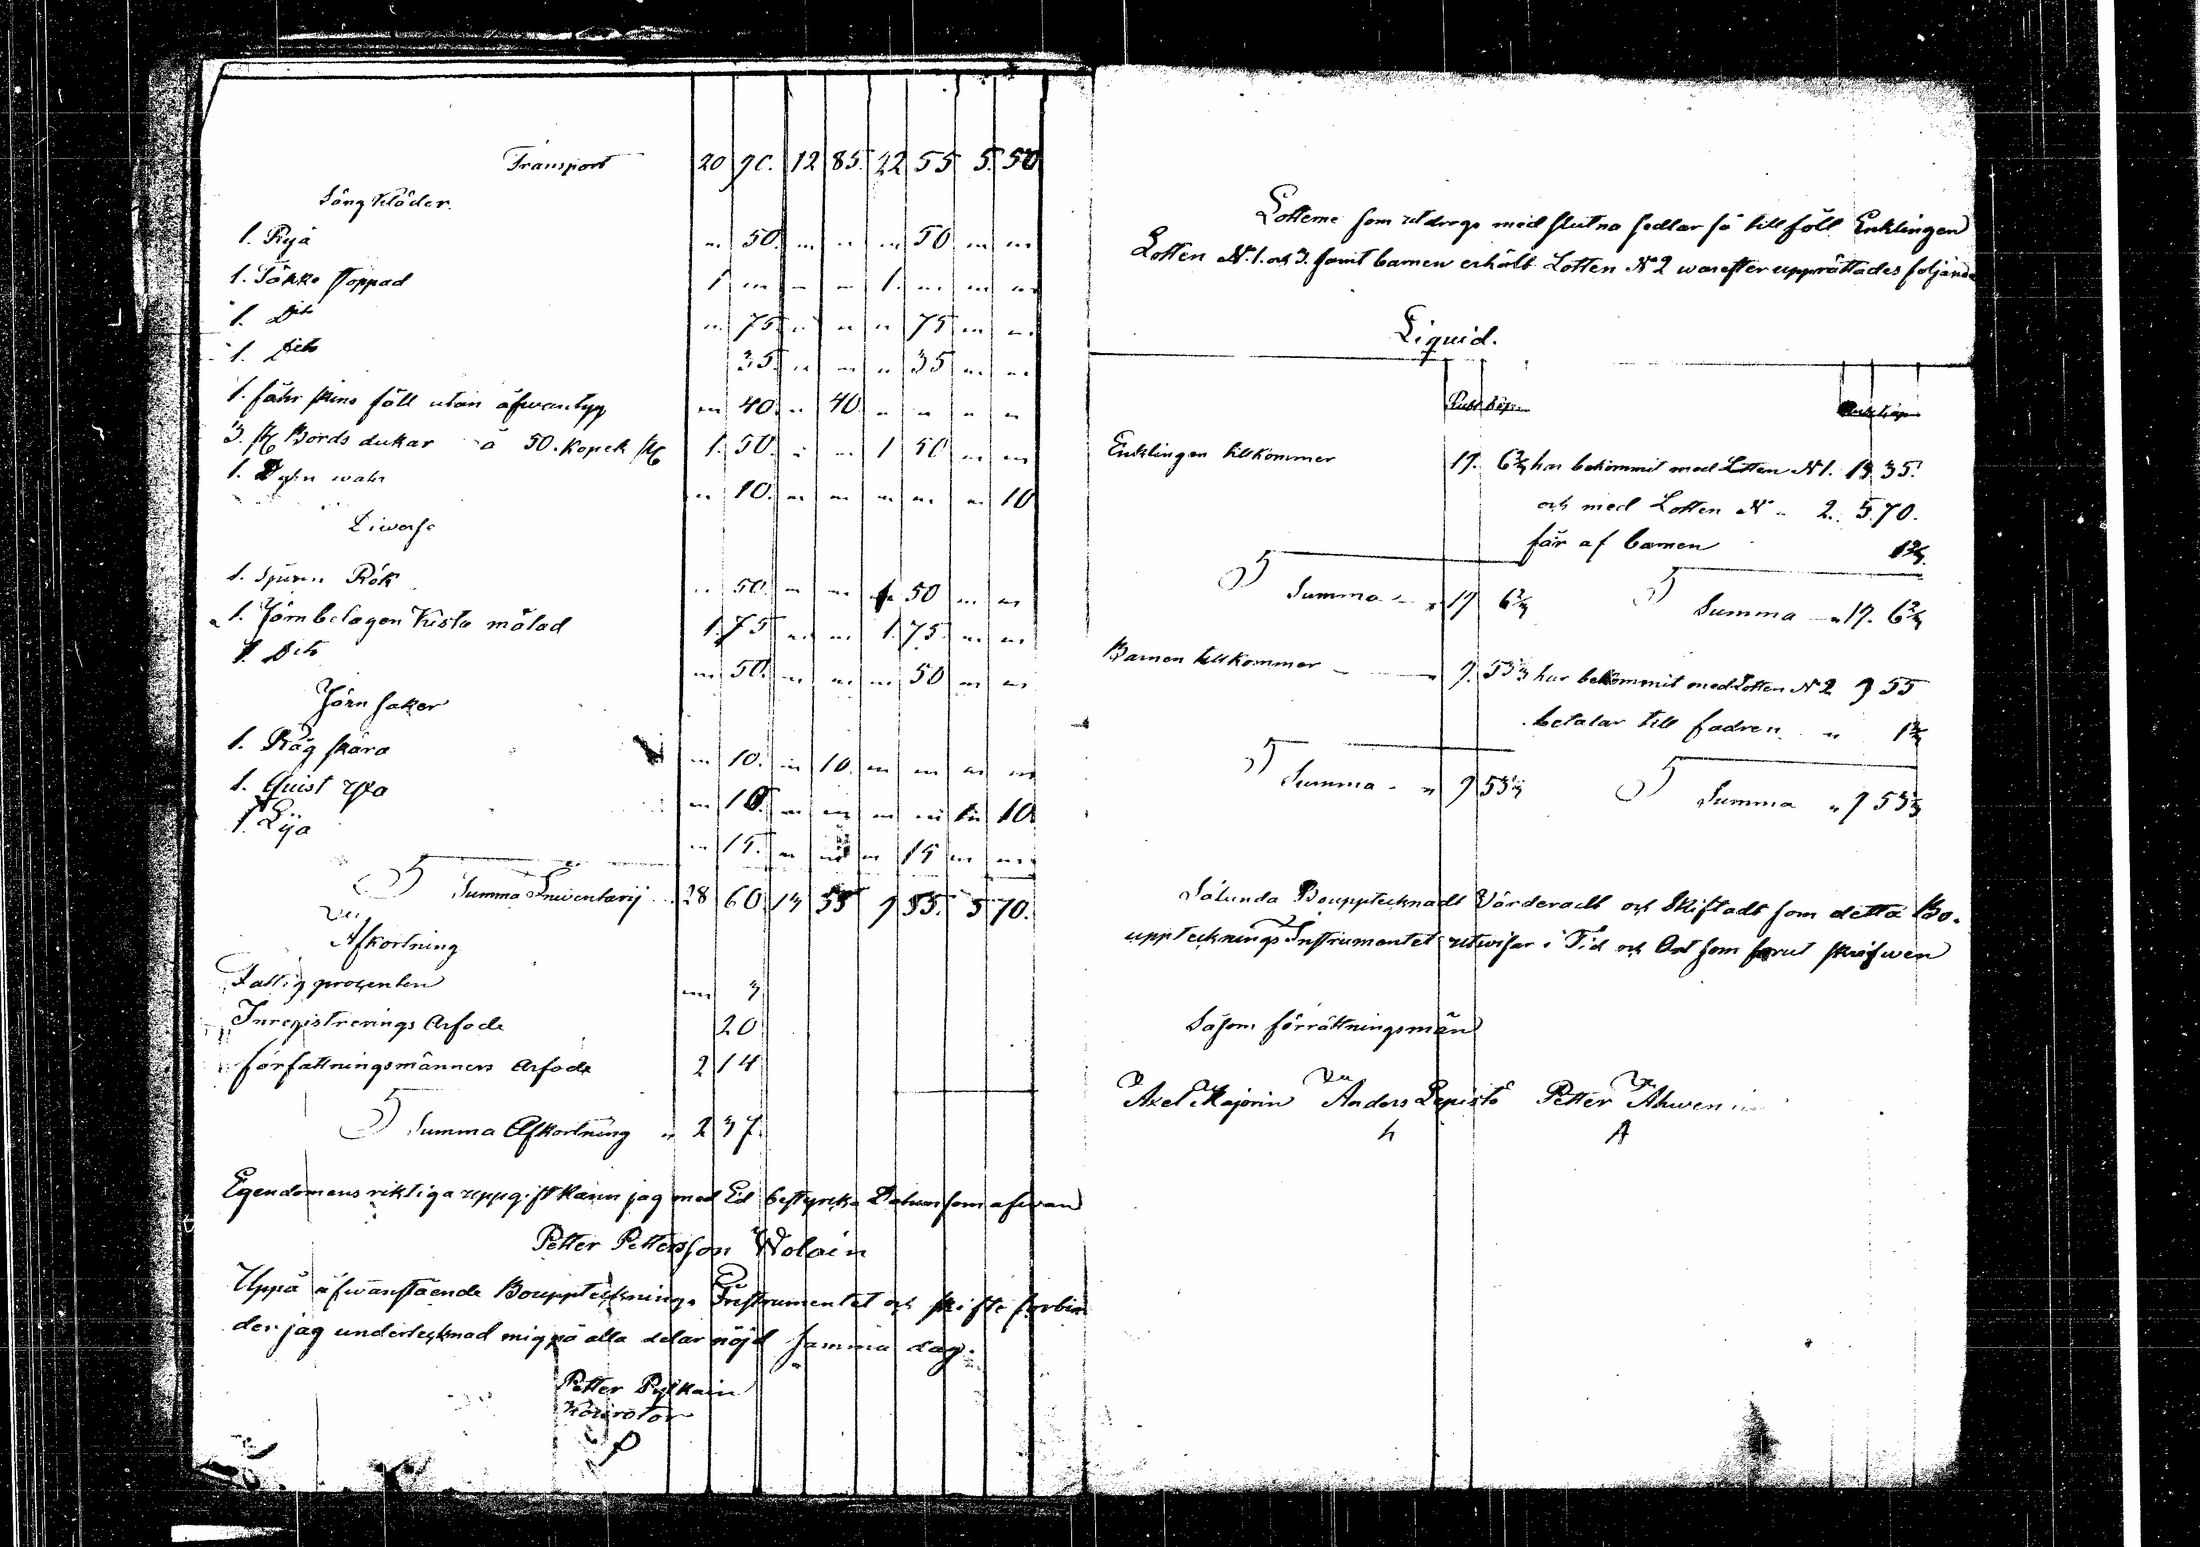 Transport 20 90. 12 85. 22 55 5. 50
Sängkläder.
1. Ryä " 50. " " " 50 " "
1. Täkke stoppad 1 " " " 1. " " "
1. Dito " 75. " " " 75 " "
1. Dito 35. " " " 35 " "
1. fåhr skins fäll utan åfwantyg " 40. " 40. " " " "
3. st Bords dukar à 50. kopek st 1. 50. " " 1 50 " "
1. wahr " 10. " " " " " 10
Diverse
1. Spinn Råk " 50. " " " 50 " "
1. Jörnbelagen Kista målad 1. 75 " " 1. 75. " "
1. Dito " 50. " " " 50 " "
Jörn saker
1. Råg skära " 10. " 10. " " " "
1. Quist yxa " 10. " " " " " 10.
1. Lija " 15. " " " 15 " "
Summa Inventarij 28 60. 13 35 9 55. 5 70.
Afkortning
Fattigprocenten " 3
Inregistrerings Arfode 20
författningsmänners Arfode 2 14
Summa Afkortning " 2 37.
Egendomens riktiga uppgift kann jag med Ed bestyrcka Datum som åfwan
Petter Pettersson Wolain
Uppå åfwanstående Boupptecknings Instrumentet och skifte forbin
der jag undertecknad mig på alla delar nöjd samma dag.
Petter Pylkain
Kourator
P
Lotterne som utdrogs med slutna sedlar så tillföll Enklingen
Lotten N. 1. och 3. samt barnen erhölt Lotten N 2 warefter upprättades foljande
Liquid.
Rub. kop. Rub. kop.
Enklingen tillkommer 19. 6 2/3 har bekommit med Lotten N 1. 13 35.
och med Lotten N " 2. 5. 70.
får af barnen 1 2/3.
Summa " 19 6 2/3 Summa " 19. 6 2/3
Barnen tillkommer " 9. 53 1/3 har bekommit med Lotten N 2 9 55
betalar till fadren " 1 2/3
Summa " 9 53 1/3 Summa " 9 53 1/3
Sålunda Boupptecknadt Värderadt och Skiftadt som detta Bo-
upptecknings Instrumentet utwisar i Tid och Ort som forut skrifwen
Såsom förrättningsmän
Axel Majorin Anders Lepistö Petter Ahwen
h A